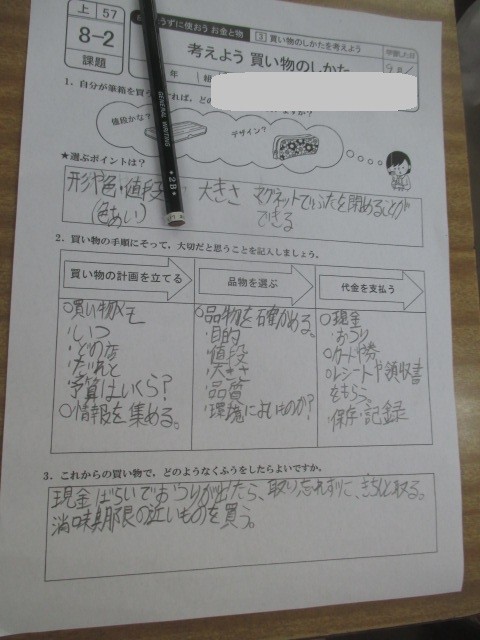 上 57
8-2
課題
うずに使おう お金と物
3 買い物のしかたを考えよう
学習した日
考えよう 買い物のしかた
年 組
1. 自分が筆箱を買う
れば、
値段かな?
デザイン?
GENERAL WRITING
2B
★選ぶポイントは?
形や色・値段 大きさ マグネットでふたを閉めることが
(色あい) できる
2. 買い物の手順にそって、大切だと思うことを記入しましょう。
買い物の計画を立てる
○買い物メモ
・いつ
・どの店
・だれと
予算はいくら?
○情報を集める。
品物を選ぶ
○品物を確かめる。
・目的
・値段
・大きさ
・品質
・環境によいものか?
代金を支払う
○現金
・おつり
○カードや券
○レシートや領収書
をもらう
・保存・記録
3. これからの買い物で、どのようなくふうをしたらよいですか。
現金ばらいでおつりが出たら、取り忘れずに、きちんと取る。
消味期限の近いものを買う。